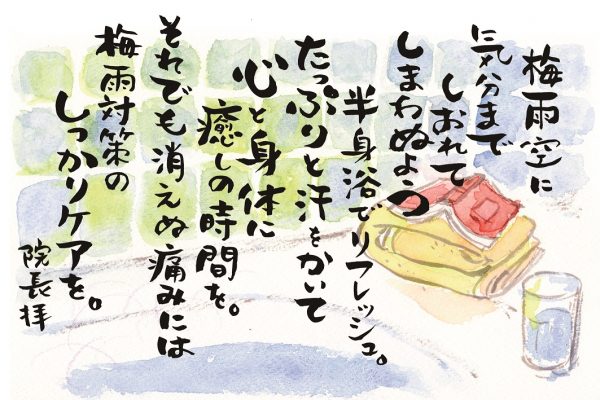 梅雨空に
気分まで
しおれて
しまわぬよう
半身浴でリフレッシュ。
たっぷりと汗をかいて
心と身体に
癒しの時間を。
それでも消えぬ痛みには
梅雨対策の
しっかりケアを。
院長拝